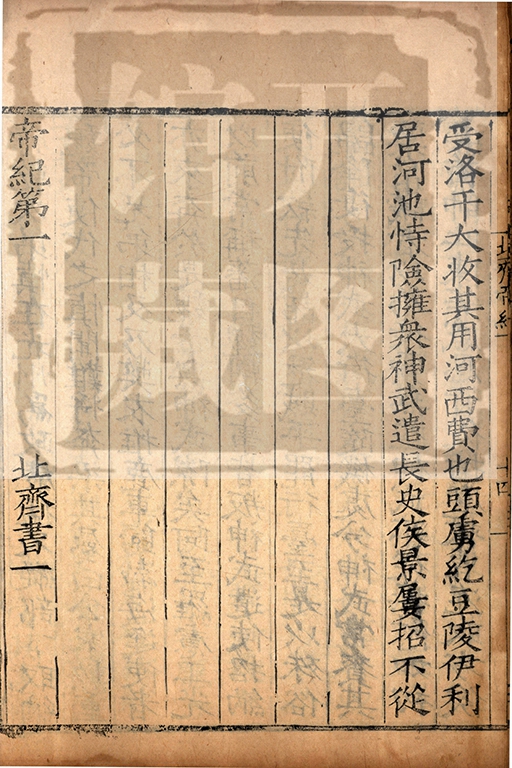 北齊帝紀一 十四
受洛干大收其用河西費也頭虜紇豆陵伊利
居河池恃險擁衆神武遣長史侯景屢招不從
帝紀第一 北齊書一
开图
馆藏